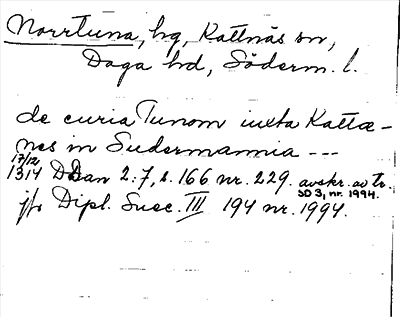 Norrtuna, hg, Kattnäs sn,
Daga hd, Söderm. l.
de curia Tunom iuxta Katta-
nes in Sudermannia ---
17/12
1314 DDan 2:7, s. 166 nr. 229. avskr. av tr.
SD 3, nr. 1994.
jfr Dipl. Suec. III 194 nr. 1994.